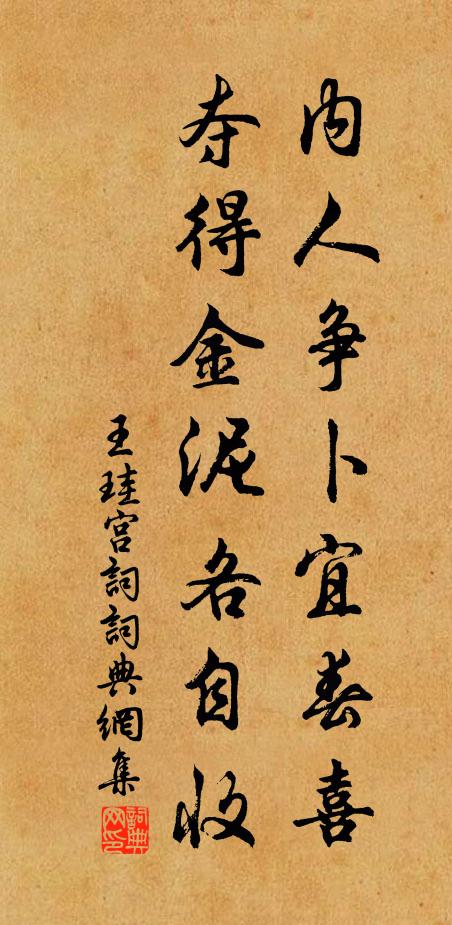 内人争卜宜春喜
夺得金泥各自收
王珪宫詞詞典網集
詞典网印